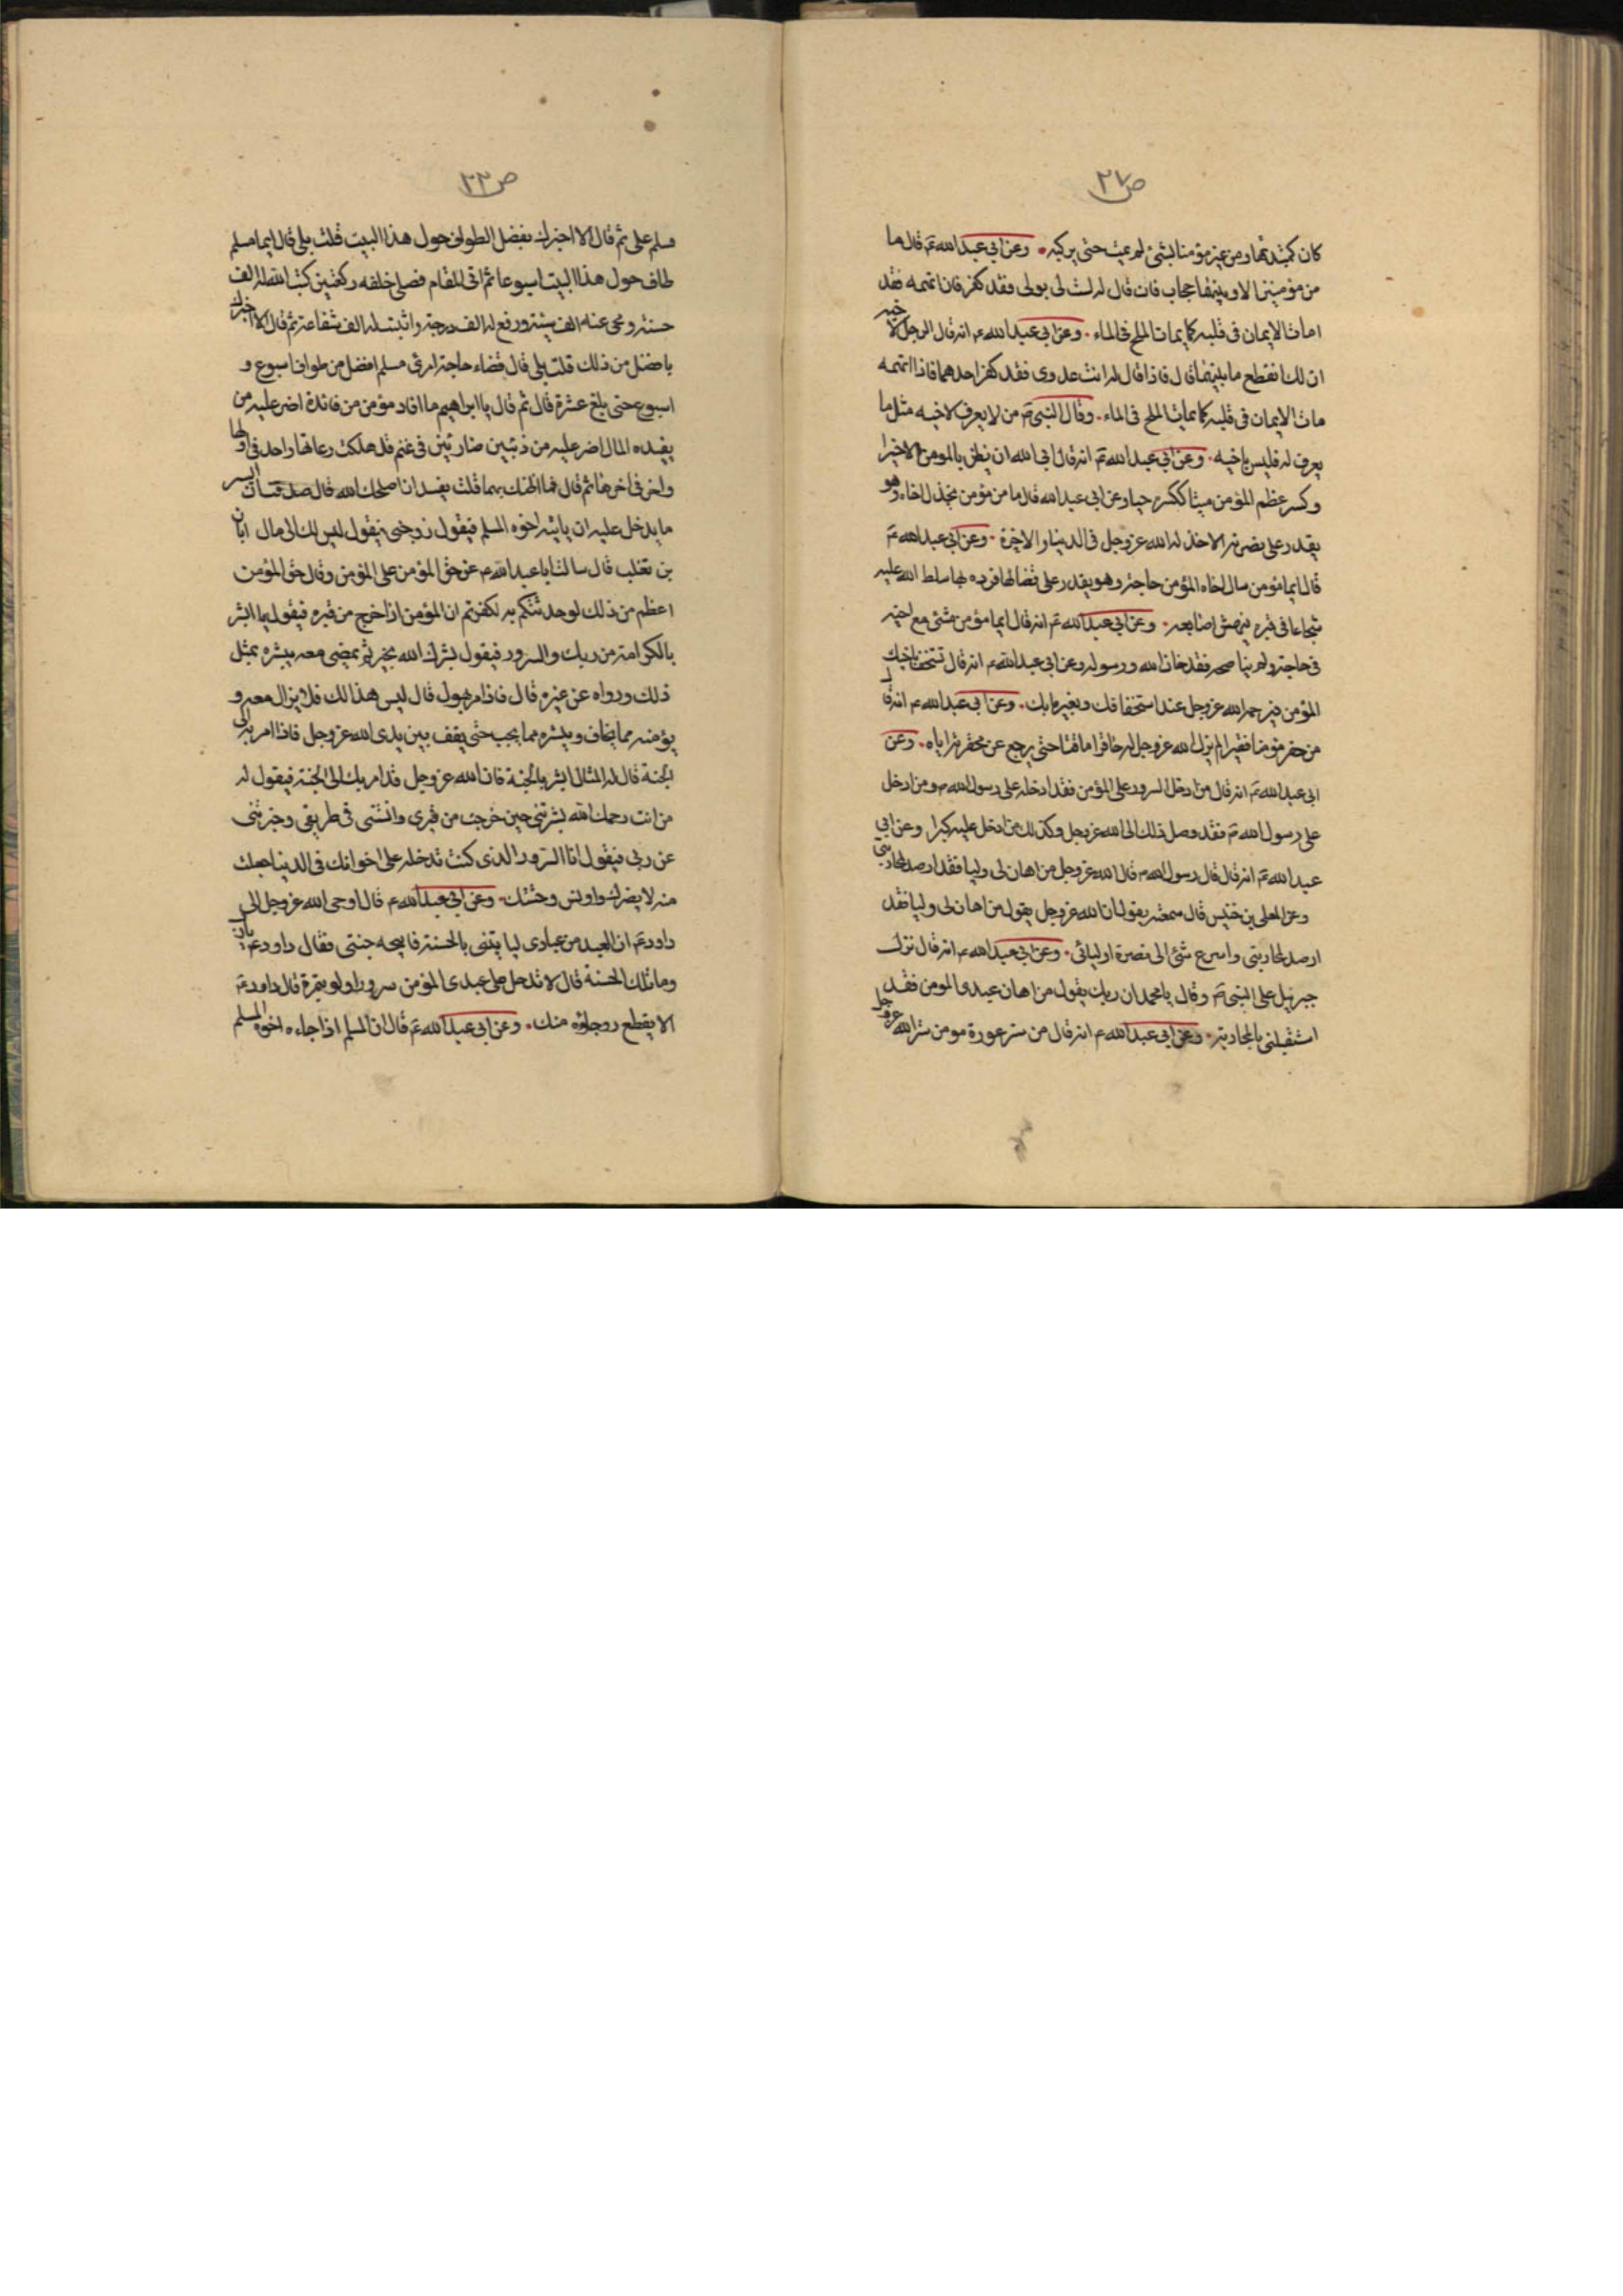 ص ٢٧
كان كمبتديها ومن عير مؤمنا بشئ لم يمت حتى يركبه وعن ابي عبدالله ع قال ما
من مؤمنين الا وبينهما حجاب فان قال له لست لي بولي فقد كفر فان اتهمه فقد
امات الايمان في قلبه كما يماث الملح في الماء وعن ابي عبدالله ع انه قال الرجل لاخيه
اف لك انقطع ما بينهما قال فاذا قال له انت عدوي فقد كفر احدهما فاذا اتهمه
ماث الايمان في قلبه كما يماث الملح في الماء وقال النبي ص من لا يعرف لاخيه مثل ما
يعرف له فليس باخيه وعن ابي عبدالله ع انه قال ابى الله ان يظن بالمومن الا خيرا
وكسر عظم المؤمن ميتا ككسره حيا وعن ابي عبدالله قال ما من مؤمن يخذل اخاه وهو
يقدر على نصرته الا خذله الله عز وجل في الدنيا والاخرة وعن ابي عبدالله ع
قال ايما مؤمن سال اخاه المؤمن حاجة وهو يقدر على قضائها فرده بها سلط الله عليه
شجاعا في قبره ينهش اصابعه وعن ابي عبدالله ع انه قال ايما مؤمن مشى مع اخيه
في حاجة ولم يناصحه فقد خان الله ورسوله وعن ابي عبدالله ع انه قال تستخف باخيك
المؤمن فيرحمه الله عز وجل عند استخفافك ويغير ما بك وعن ابي عبدالله ع انه قال
من حقر مؤمنا فقيرا لم يزل الله عز وجل له حاقرا ماقتا حتى يرجع عن محقرته اياه وعن
ابي عبدالله ع انه قال من ادخل السرور على المؤمن فقد ادخله على رسول الله ص ومن ادخل
على رسول الله ص فقد وصل ذلك الى الله عز وجل وكذلك من ادخل عليه كربا وعن ابي
عبدالله ع انه قال قال رسول الله ص قال الله عز وجل من اهان لي وليا فقد ارصد لمحاربتي
وعن المعلى بن خنيس قال سمعته يقول ان الله عز وجل يقول من اهان لي وليا فقد
ارصد لمحاربتي وانا اسرع شئ الى نصرة اوليائي وعن ابي عبدالله ع انه قال نزل
جبرئيل على النبي ص وقال يا محمد ان ربك يقول من اهان عبدي المومن فقد
استقبلني بالمحاربة وعن ابي عبدالله ع انه قال من ستر عورة مومن ستر الله عز وجل
ص ٣٣
فسلم علي ثم قال الا اخبرك بفضل الطواف حول هذا البيت قلت بلى قال ايما مسلم
طاف حول هذا البيت اسبوعا ثم اتى المقام فصلى خلفه ركعتين كتب الله له الف
حسنة ومحى عنه الف سيئة ورفع له الف درجة واثبت له الف شفاعة ثم قال الا اخبرك
بافضل من ذلك قلت بلى قال قضاء حاجة امرئ مسلم افضل من طواف اسبوع و
اسبوع حتى بلغ عشرة قال ثم قال يا ابراهيم ما افاد مؤمن من فائدة اضر عليه من
يفيده المال اضر عليه من ذئبين ضاريين في غنم قد هلكت رعاتها واحد في اولها
واخر في اخرها ثم قال فما ظنك بهما قلت يفسدان اصلحك الله قال صدقت ان ايسر
ما يدخل عليه ان ياتيه اخوه المسلم فيقول زوجني فيقول ليس لك الي مال ابان
بن تغلب قال سالت ابا عبدالله ع عن حق المؤمن على المؤمن وقال حق المؤمن
اعظم من ذلك لو حدثتكم به لكفرتم ان المؤمن اذا خرج من قبره فيقول له ابشر
بالكرامة من ربك والسرور فيقول بشرك الله بخير ثم يمضي معه يبشره بمثل
ذلك ورواه عن غيره قال فاذا مر بهول قال ليس هذا لك فلا يزال معه و
يؤمنه مما يخاف ويبشره مما يحب حتى يقف بين يدي الله عز وجل فاذا امر به الى
الجنة قال له المثال ابشر بالجنة فان الله عز وجل قد امر بك الى الجنة فيقول له
من انت رحمك الله بشرتني حين خرجت من قبري وانستني في طريقي وخبرتني
عن ربي فيقول انا السرور الذي كنت تدخله على اخوانك في الدنيا جعلت
منه لابشرك واونس وحشتك وعن ابي عبدالله ع قال اوحى الله عز وجل الى
داود ع ان العبد من عبادي لياتيني بالحسنة فابيحه جنتي فقال داود ع يارب
وما تلك الحسنة قال لا تدخل على عبدي المؤمن سرورا ولو بتمرة قال داود ع
الا يقطع رجاؤه منك وعن ابي عبدالله ع قال ان المسلم اذا جاءه اخوه المسلم